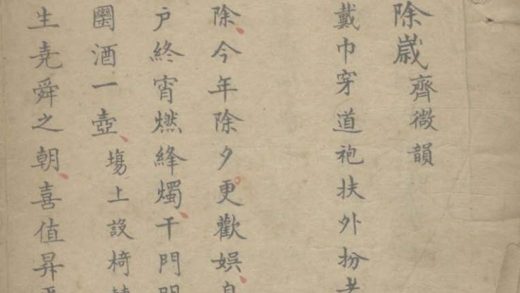 除嵗齊微韻
戴巾穿道袍扶外扮老
除今年除夕更歡娛
户終宵燃絳燭千門
圞酒一壺塲上設椅
生堯舜之朝喜值昇